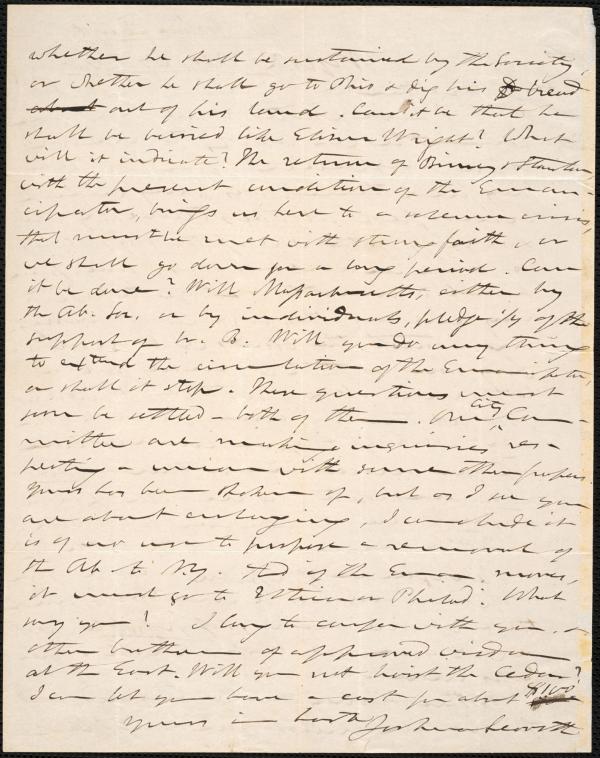 whether he shall be sustained by the Society,
or whether he shall go to Ohio & dig his bread
out of his land. Can it be that he
shall be buried like Elizur Wright? What
will it indicate? The return of Birney & Stanton
with the present condition of the Eman-
cipator, brings us here to a solemn crisis,
that must be met with strong faith, or
we shall go down for a long period. Can
it be done? Will Massachusetts, either by
the Ab. Soc. or by individuals, pledge of the
support of Mr. B. Will you do any thing
to extend the circulation of the Emancipator,
or shall it stop. These questions must
soon be settled - both of them. Our City Com-
mittee are making inquiries res-
pecting a union with some other papers.
Yours has been spoken of, but as I see you
are about enlarging, I conclude it
is of no use to propose a removal of
the Ab. to N.Y. And if the Eman. moves,
it must go to Utica or Philad. What
say you? I long to confer with you, &
other brethren of approved wisdom
at the East. Will you not hoist the Cedar?
I can let you have a cast for about $100
yours in haste Joshua Leavitt